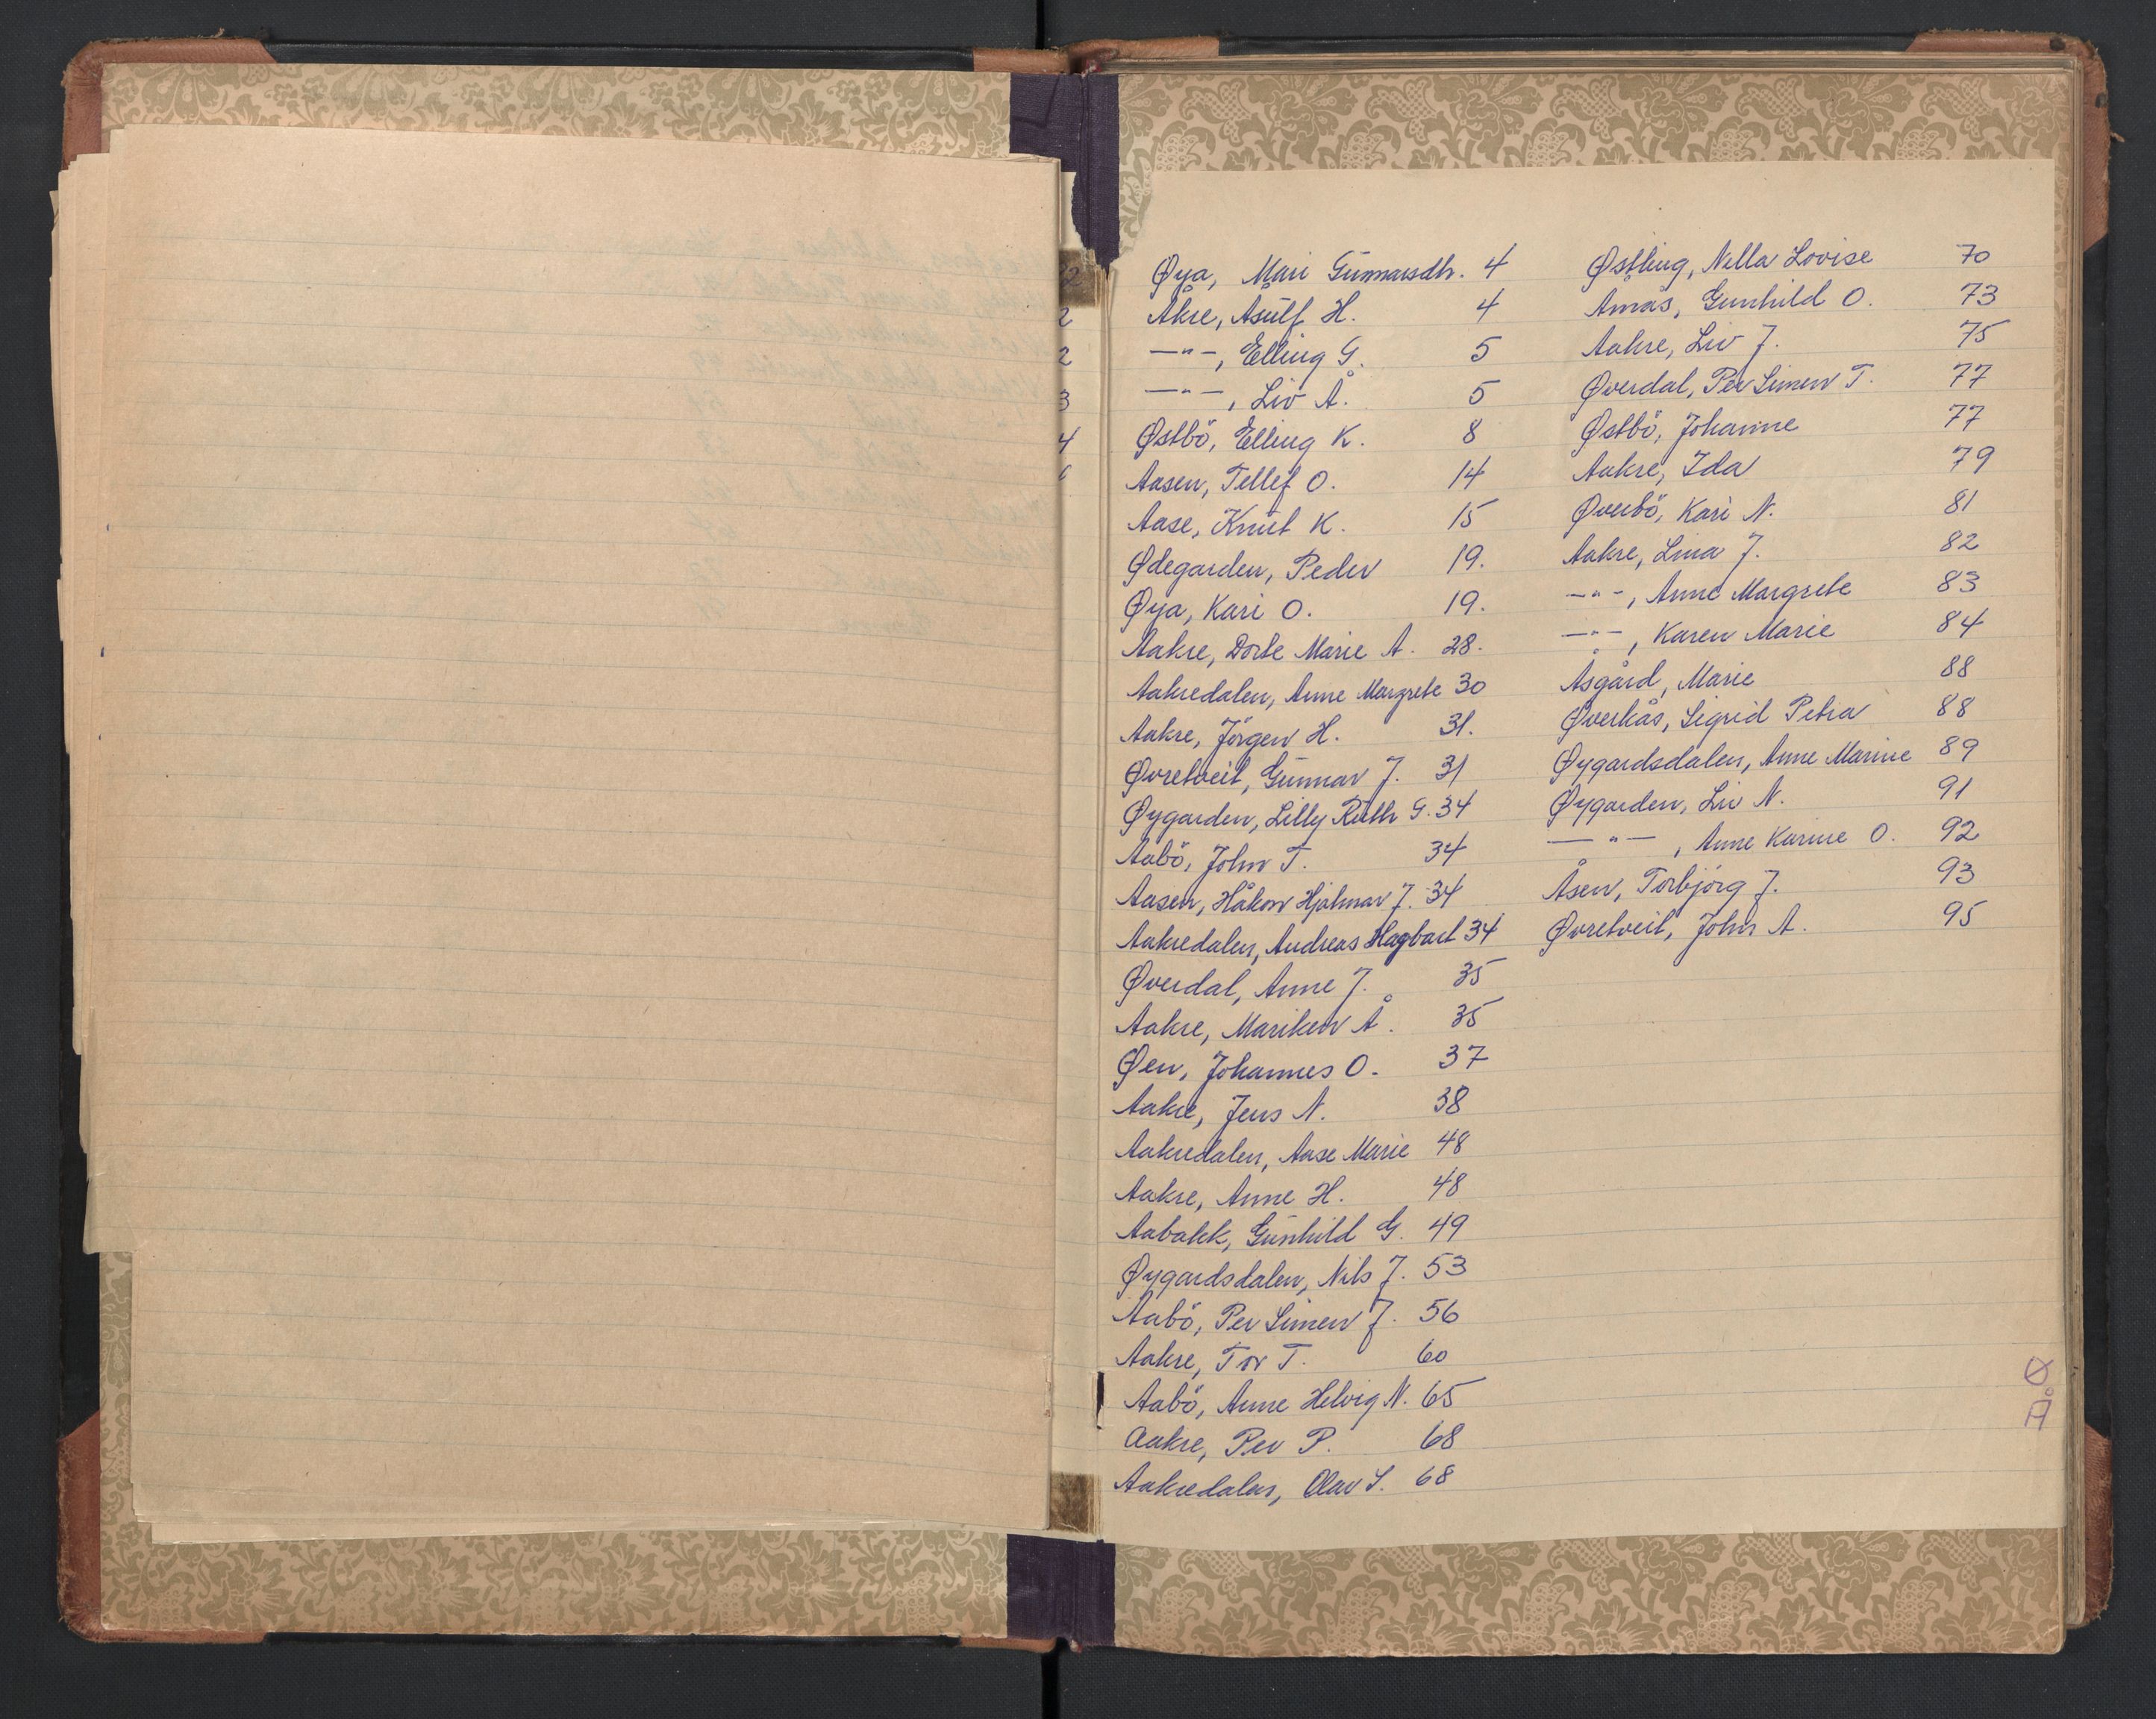 Øya, Mari Gunnarsdtr. 4
Åkre, Åsulf H. 4
—"—, Elling G. 5
—"—, Liv Å. 5
Østbö, Elling K. 8
Aasen, Tellef O. 14
Aase, Knut K. 15
Ødegarden, Peder 19.
Øya, Kari O. 19.
Aakre, Dorte Marie A. 28.
Aakredalen, Anne Margrete 30
Aakre, Jörgen H. 31.
Øvretveit, Gunnar J. 31
Øygarden, Lilly Ruth G. 34
Aabö, John T. 34
Aasen, Håkon Hjalmar J. 34
Aakredalen, Andreas Hagbart 34
Øverdal, Anne J. 35
Aakre, Mariken Å. 35
Øen, Johannes O. 37
Aakre, Jens N. 38
Aakredalen, Aase Marie 48
Aakre, Anne H. 48
Aabakk, Gunhild G. 49
Øygardsdalen, Nils J. 53
Aabö, Per Simen J. 56
Aakre, Tor T. 60
Aabö, Anne Helvig N. 65
Aakre, Per P. 68
Aakredalen, Olav S. 68
Østling, Nilla Lovise 70
Åmås, Gunhild O. 73
Aakre, Liv J. 75
Øverdal, Per Simen T. 77
Østbö, Johanne 77
Aakre, Ida 79
Øverbö, Kari N. 81
Aakre, Lina J. 82
—"—, Anne Margrete 83
—"—, Karen Marie 84
Åsgård, Marie 88
Øverkås, Sigrid Petra 88
Øygardsdalen, Anne Marine 89
Øygarden, Liv N. 91
—"—, Anne Karine O. 92
Åsen, Torbjörg J. 93
Øvretveit, John A. 95
Ø
Å